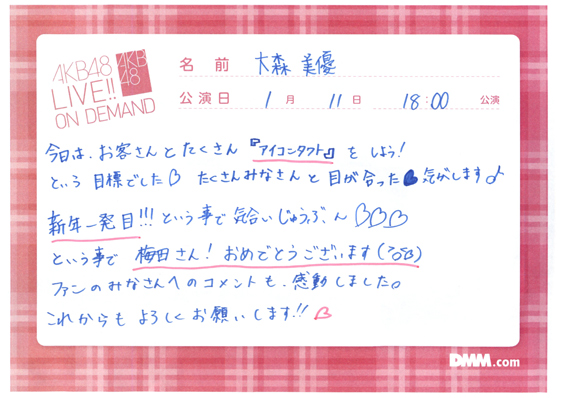 AKB48
LIVE!!
ON DEMAND
AKB
48
名前 大森美優
公演日 1月 11日 18:00 公演
今日は、お客さんとたくさん『アイコンタクト』をしよう!
という目標でした♡ たくさんみなさんと目が合った♥気がします♪
新年一発目!!! という事で気合いじゅうぶん♡♡♡
という事で 梅田さん! おめでとうございます(
ファンのみなさんへのコメントも、感動しました。
これからもよろしくお願いします!! ♡
DMM.com